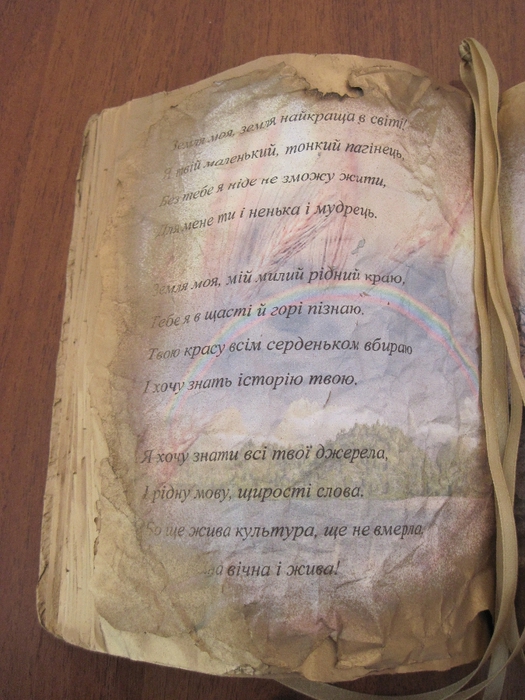 Земля моя, земля найкраща в світі!
Я твій маленький, тонкий пагінець,
Без тебе я ніде не зможу жити,
Для мене ти і ненька і мудрець.
Земля моя, мій милий рідний краю,
Тебе я в щасті й горі пізнаю.
Твою красу всім серденьком вбираю
І хочу знать історію твою.
Я хочу знати всі твої джерела,
І рідну мову, щирості слова.
Бо ще жива культура, ще не вмерла,
вічна і жива!